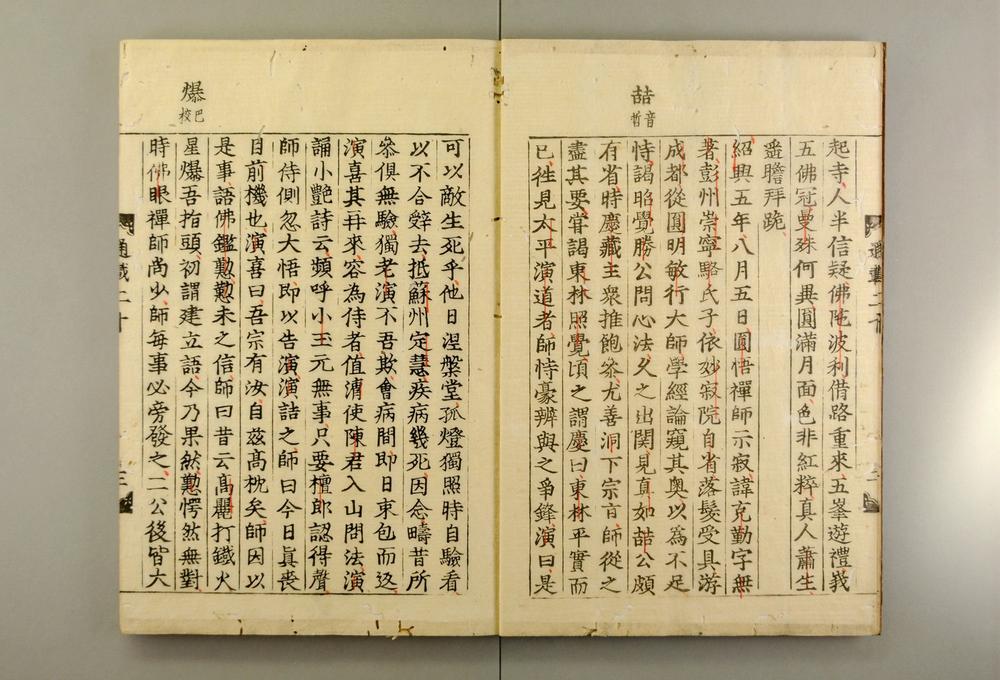 喆
音
哲
起寺、人半信疑、佛陁波利借路重來、五峯遊禮、義
五佛冠曼殊何異、圓滿月面色非紅粹、真人蕭生
畨膽拜跪
紹興五年八月五日、圓悟禪師示寂、諱克勤字無
著、彭州崇寧駱氏子、依妙寂院自省落髮受具、游
成都從圓明敏行大師學經論、窺其奧以為不足
恃、謁昭覺勝公問心法、久之出関、見真如喆公頗
有省、時慶藏主衆推飽叅、尤善洞下宗言、師從之
盡其要、甞謁東林照覺、頃之謂慶曰、東林平實而
已、徃見太平演道者、師恃豪辨與之爭鋒、演曰、是
可以敵生死乎、他日涅槃堂孤燈獨照時自驗看、
以不合辤去、抵蘇州定慧疾病幾死、因念疇昔所
叅俱無驗、獨老演不吾欺、會病間即日束包而返、
演喜其再來、容為侍者、值漕使陳君入山問法、演
誦小艷詩云、頻呼小玉元無事、只要檀郎認得聲、
師侍側忽大悟、即以告演、演詰之、師曰、今日真喪
目前機也、演喜曰、吾宗有汝、自茲高枕矣、師因以
是事語佛鑑懃、懃未之信、師曰、昔云高麗打鐵火
星爆吾指頭、初謂建立語、今乃果然、懃愕然無對、
時佛眼禪師尚少、師每事必旁發之、二公後皆大
爆
巴
校
通載二十